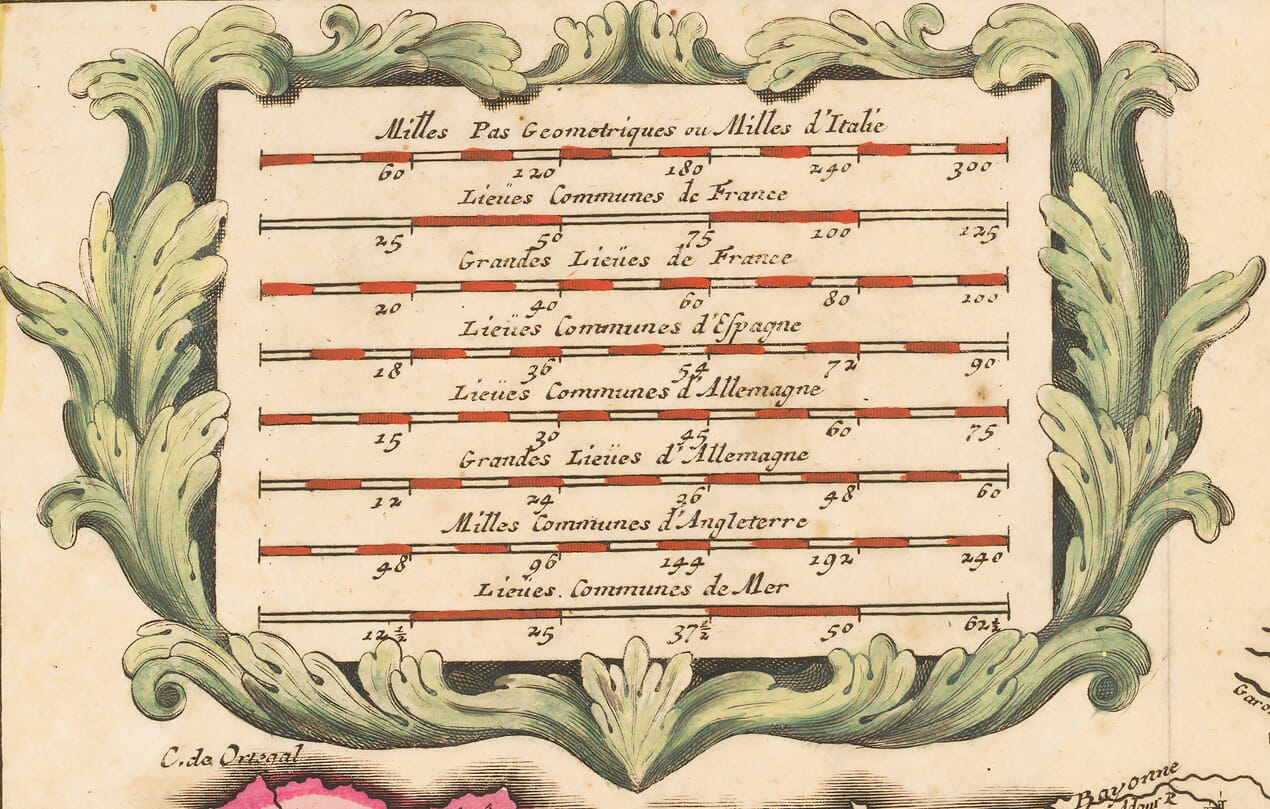 Milles Pas Geometriques ou Milles d'Italie
60 120 180 240 300
Lieües Communes de France
25 50 75 100 125
Grandes Lieües de France
20 40 60 80 100
Lieües Communes d'Eſpagne
18 36 54 72 90
Lieües Communes d'Allemagne
15 30 45 60 75
Grandes Lieües d'Allemagne
12 24 26 48 60
Milles Communes d'Angleterre
48 96 144 192 240
Lieües Communes de Mer
12½ 25 37½ 50 62½
C. de Ortegal
Garo
Bayonne
Adour R.